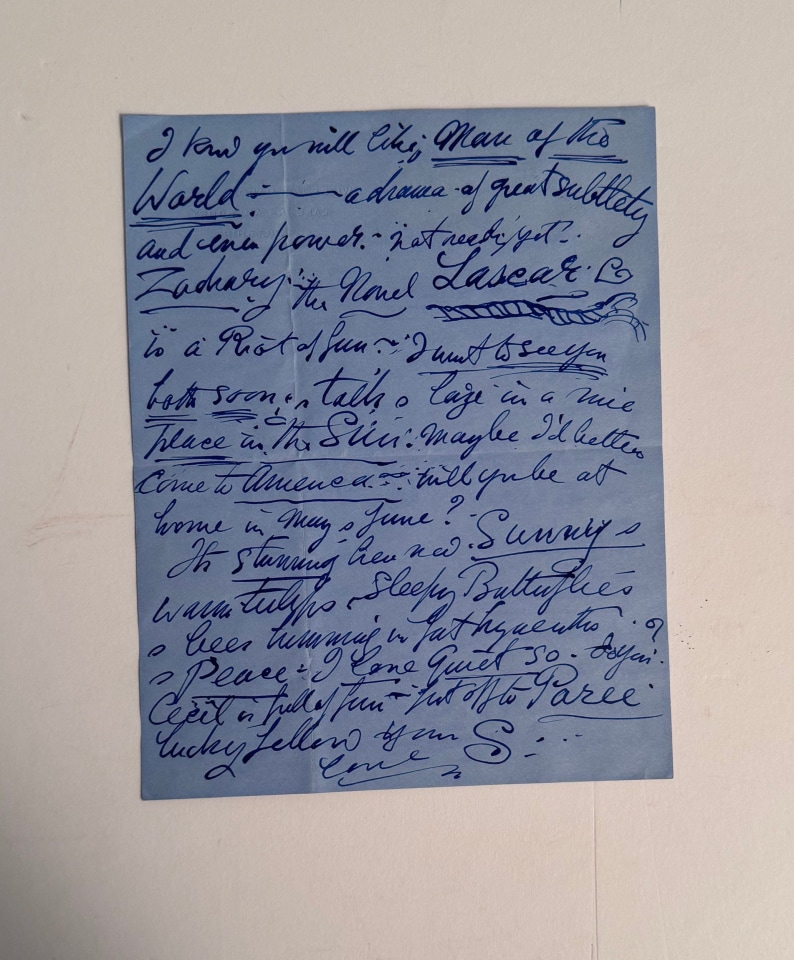 I know you will like Man of the
World — a drama of great subtlety
and even power. - not ready yet -
Zachary: the Novel Lascar
is a Riot of fun - I want to see you
both soon & talk & laze in a nice
place in the Sun. Maybe I'd better
come to America - will you be at
home in May & June?
It's stunning here now. Sunny &
warm Tulips, Sleepy Butterflies
& bees humming in fat hyacinths.
& Peace - I love Quiet so - Do you?
Cecil is full of fun - just off to Paree
lucky fellow your S
love